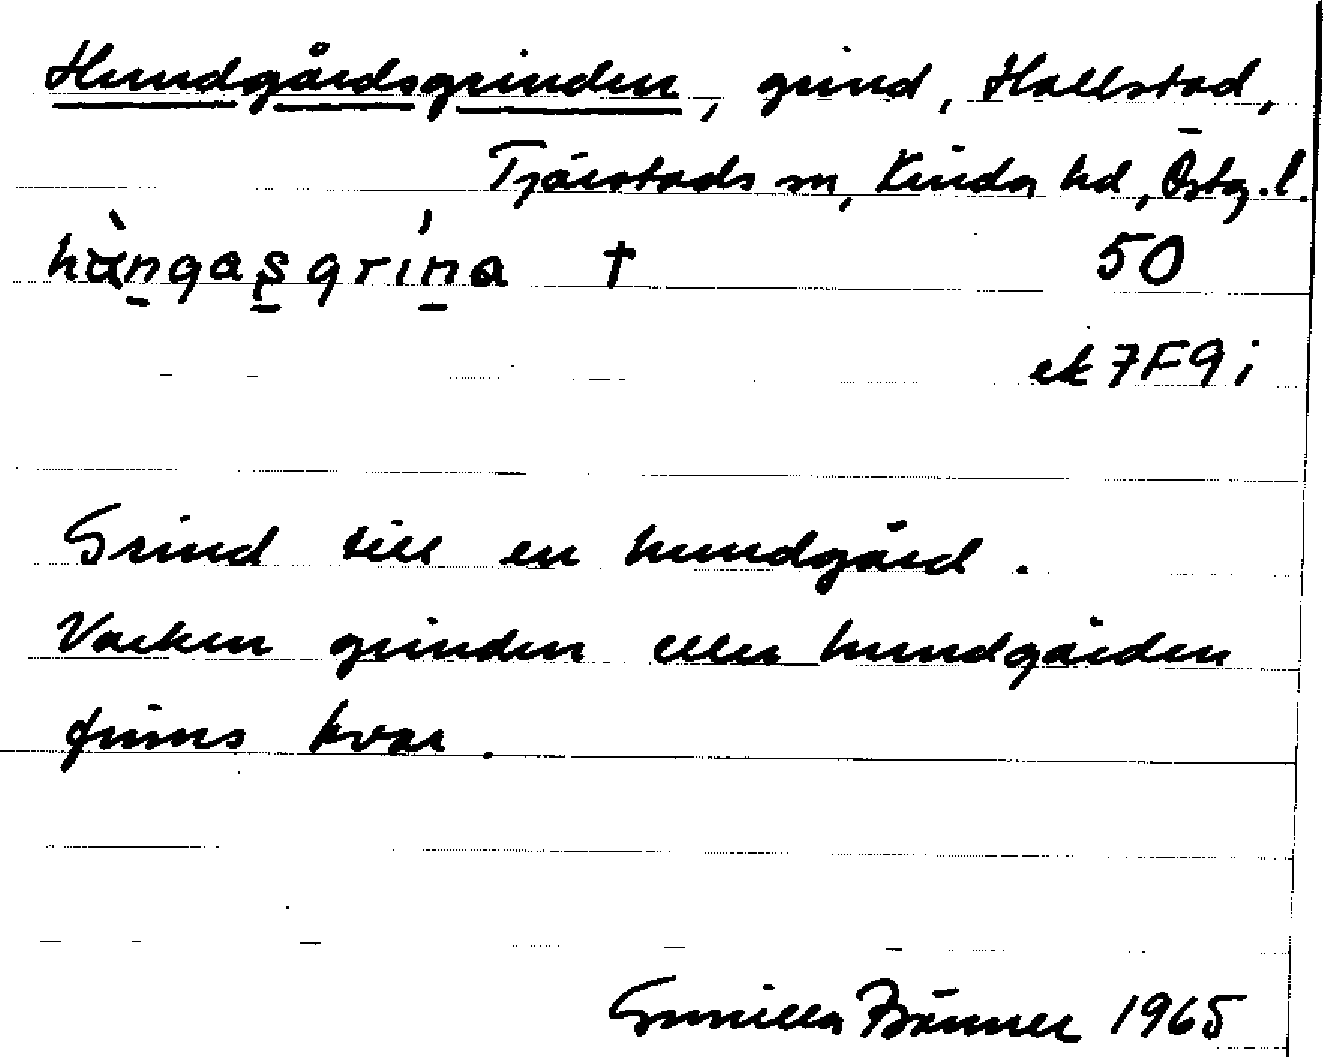 Hundgårdsgrinden, grind, Hallstad,
Tjärstads sn, Kinda hd, Östg.l.
hùn̲gas̲grín̲a † 50
ek 7F9i
Grind till en hundgård.
Varken grinden eller hundgården
finns kvar.
Gunilla Brönner 1965